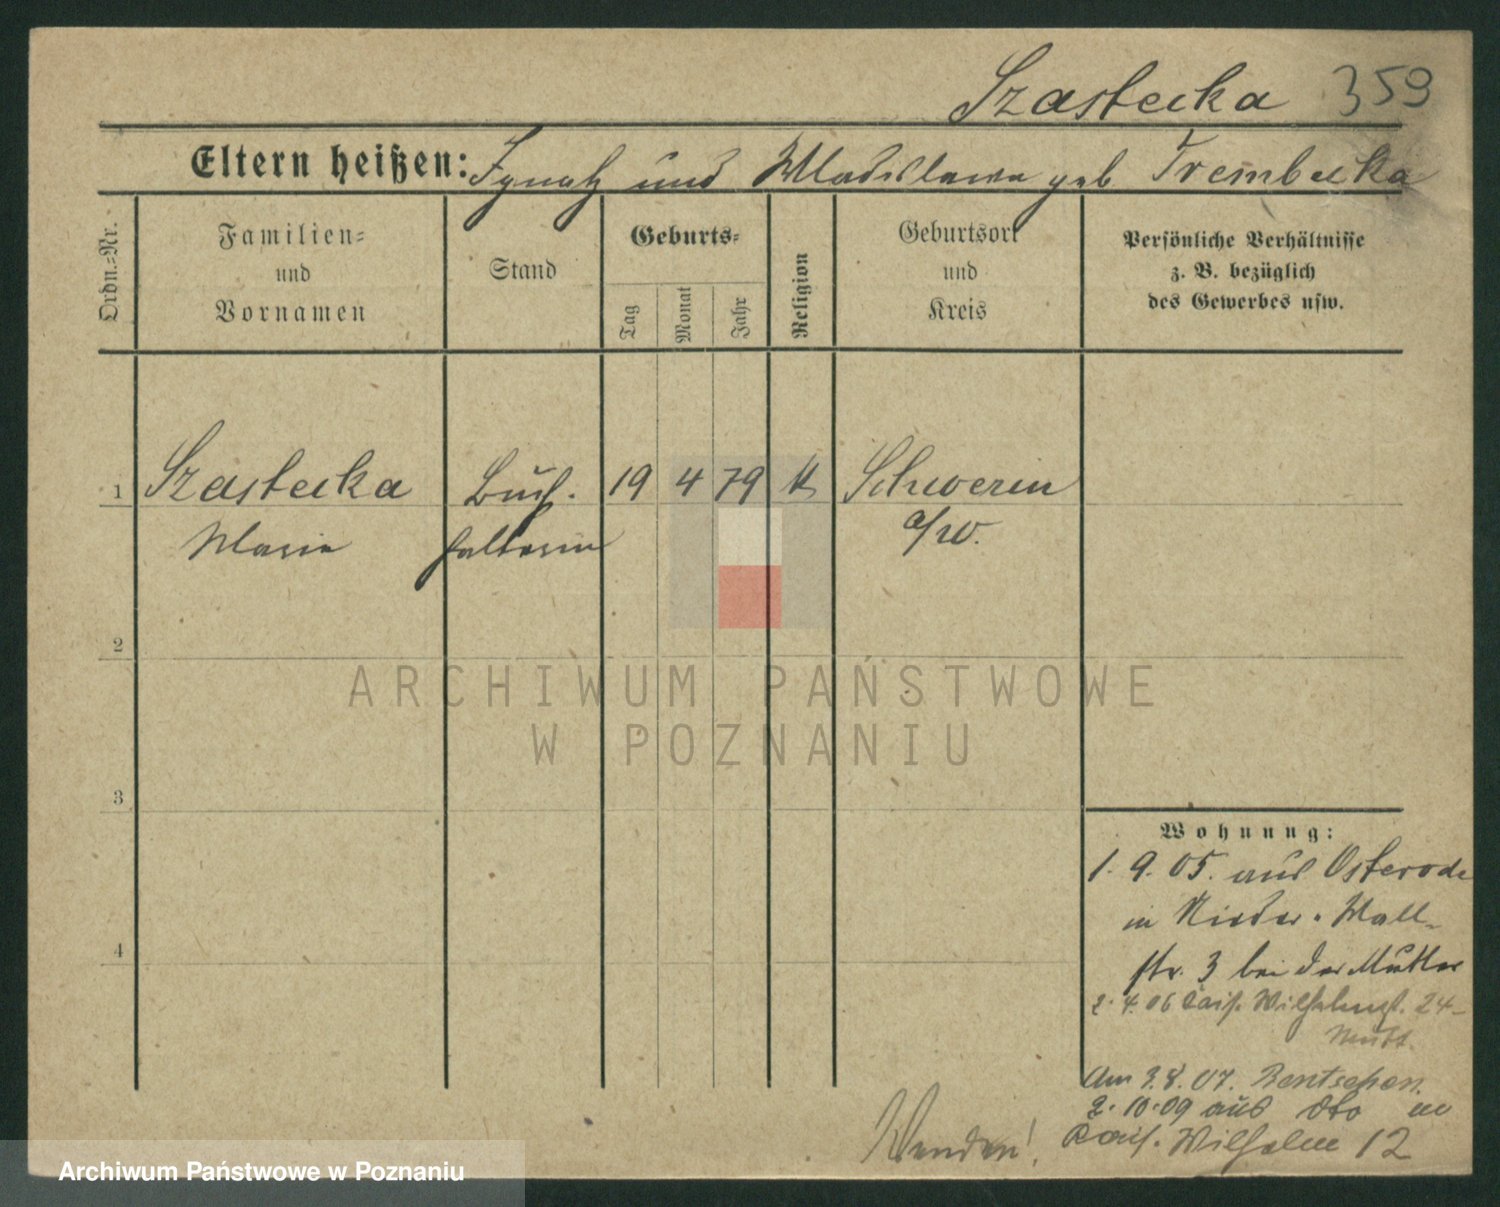 Szastecka 359
Eltern heißen: Ignatz und Wladislawa geb Trembecka
Ordn.-Nr.
Familien-
und
Vornamen
Stand
Geburts-
Tag
Monat
Jahr
Religion
Geburtsort
und
Kreis
Persönliche Verhältnisse
z. B. bezüglich
des Gewerbes usw.
1 Szastecka Buch- 19 4 79 K Schwerin
Marie halterin a/W.
2
3
4
ARCHIWUM PAŃSTWOWE
W POZNANIU
Wohnung:
1. 9. 05. aus Osterode
in Nieder-Wall-
str. 3 bei der Mutter
2. 4. 06 Kais. Wilhelmst. 24
Mutt.
Am 3.8.07. Bentschen.
2. 10. 09 aus dto in
Kais. Wilhelm 12
Wenden!
Archiwum Państwowe w Poznaniu